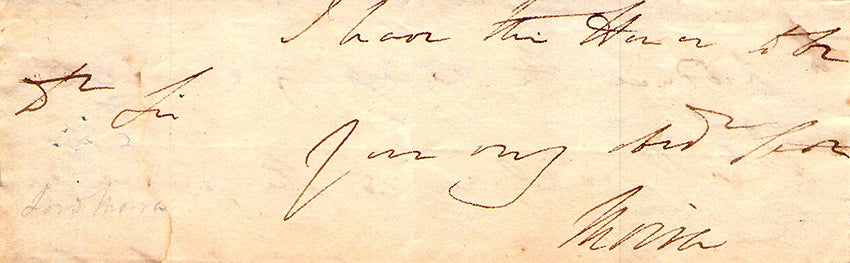 I have the Honor to be
Dr. Sir
Your very obedt Serv
Lord Moira
Moira